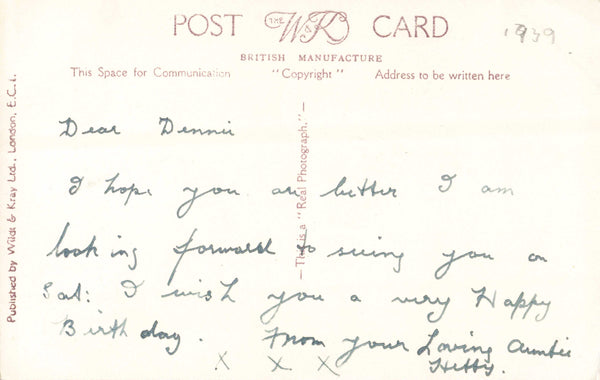 POST THE W & K CARD
1939
BRITISH MANUFACTURE
This Space for Communication "Copyright" Address to be written here
Published by Wildt & Kray Ltd., London, E.C.1.
— This is a "Real Photograph." —
Dear Dennie
I hope you are better I am
looking forward to seeing you on
Sat: I wish you a very Happy
Birthday. From your Loving Auntie
X X X Hetty.